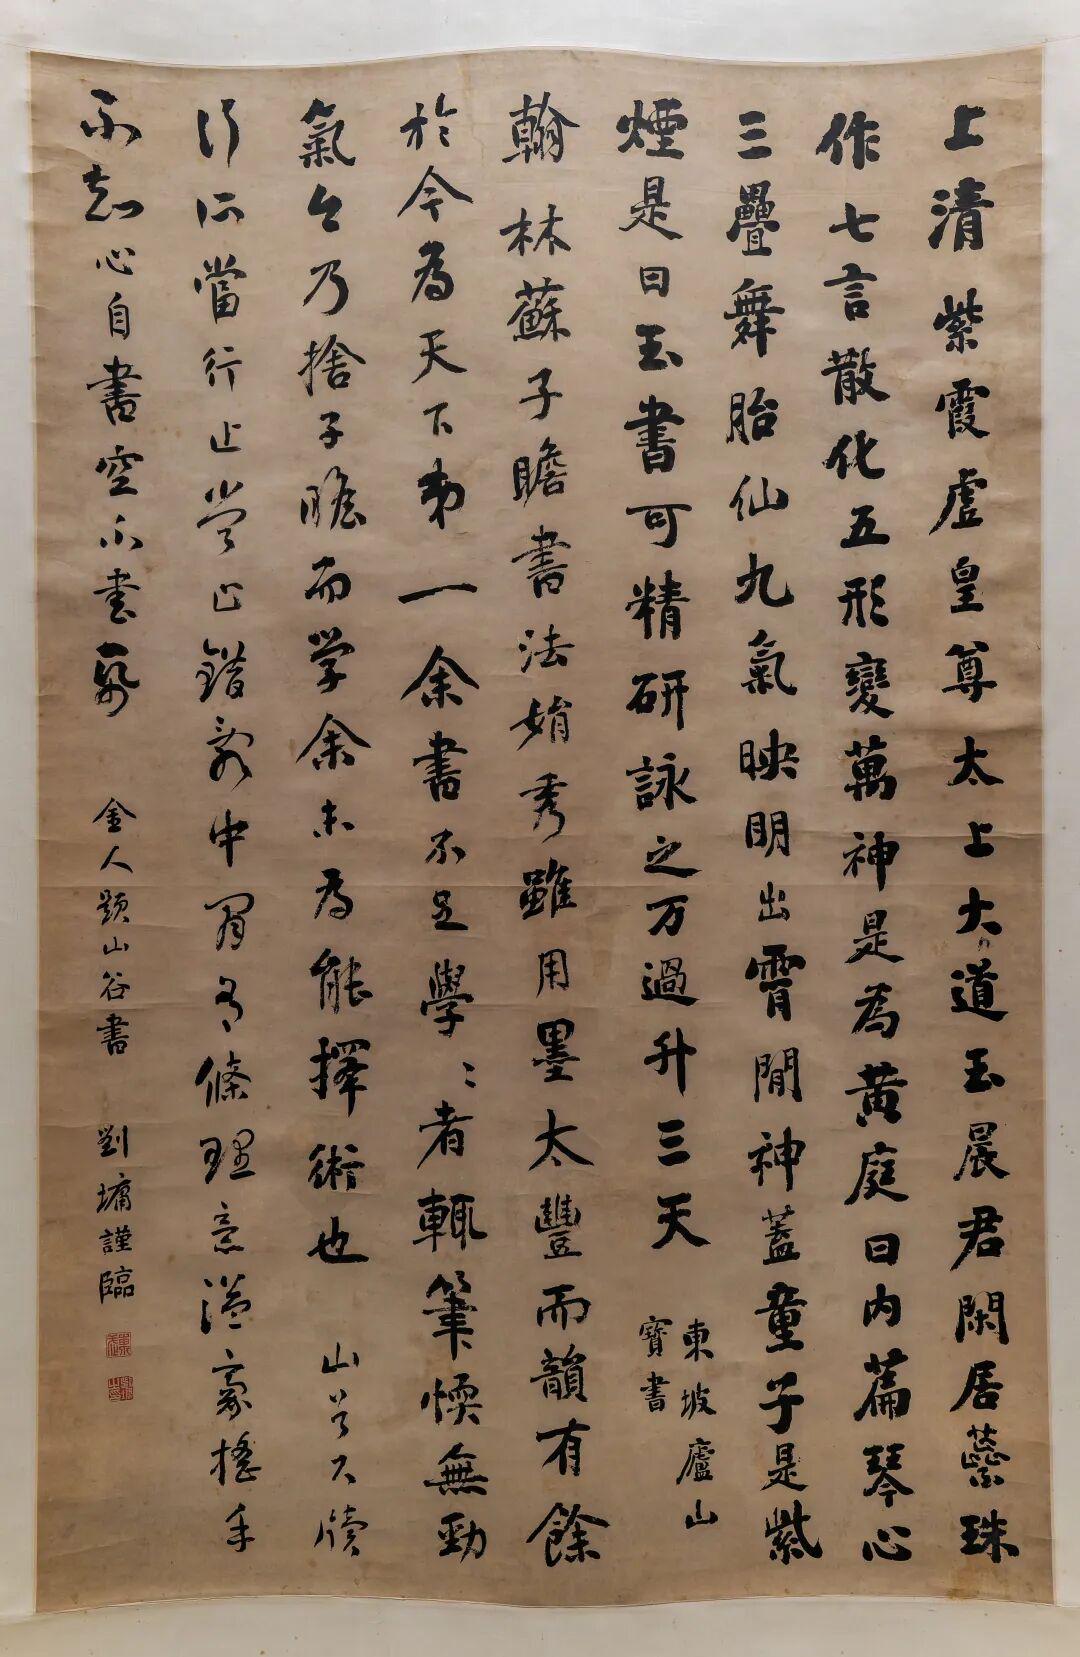 上清紫霞虛皇尊太上大道玉晨君閑居蘂珠
作七言散化五形變萬神是為黃庭曰内篇琴心
三疊舞胎仙九氣映明出霄間神蓋童子是紫
煙是曰玉書可精研詠之万過升三天
東坡廬山
寶書
翰林蘇子瞻書法娟秀雖用墨太豐而韻有餘
於今為天下第一余書不足學〻者輒筆愞無勁
氣今乃捨子瞻而學余未為能擇術也
山谷尺牘
行所當行止當止錯亂中間有條理意溢豪搖手
不知心自書空不書紙
金人題山谷書
劉墉謹臨